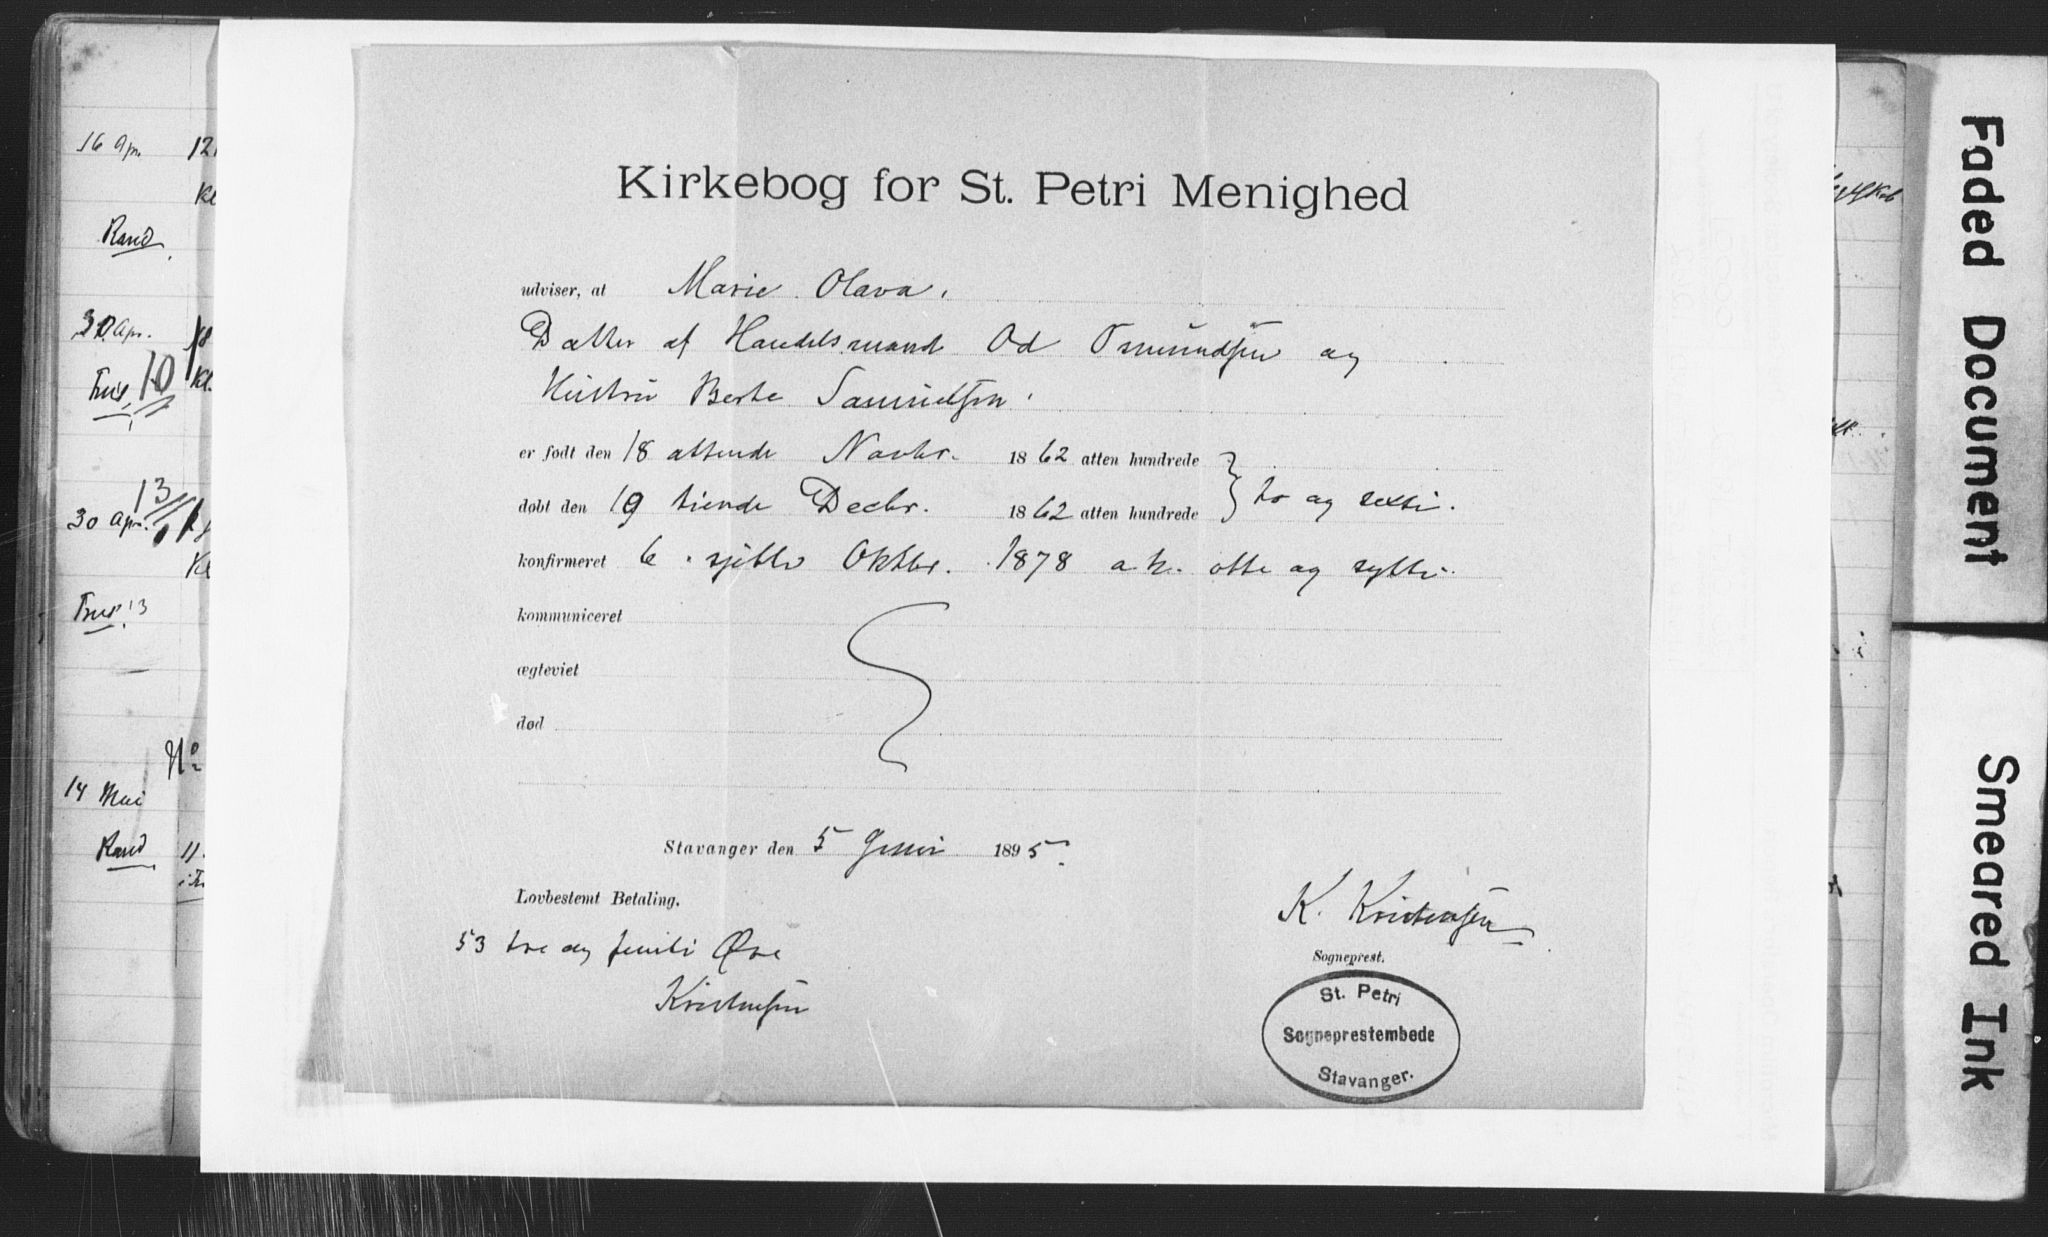 Kirkebog for St. Petri Menighed
udviser, at Marie Olava,
Datter af Handelsmand Od Osmundsen og
Hustru Berte Samuelsen.
er født den 18 attende Novbr. 1862 atten hundrede
døbt den 19 tiende Decbr. 1862 atten hundrede } to og sexti.
konfirmeret 6. sjette Oktbr. 1878 a.h. otte og sytti.
kommuniceret
ægteviet
død
Stavanger den 5 Juni 1895.
Lovbestemt Betaling.
53 tre og femti Øre
Kristensen
K. Kristensen
Sogneprest.
St. Petri
Sogneprestembede
Stavanger.
16 Apr. 12
Kl
Rand.
30 Apr. 18
10 Kl.
13
30 Apr.
Kl
13
No
14 Mai
Rand 11
Faded Document
Smeared Ink